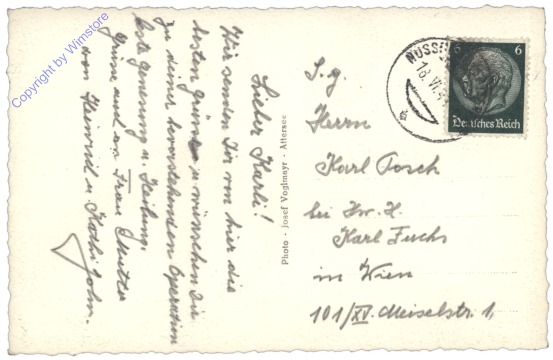 Lieber Karli!
Wir senden Dir von hier die
besten Grüsse u. wünschen Dir
zu deiner bevorstehenden Operation
beste Genesung u. Heilung.
Grüsse auch an Frau
von Heinrich u. Kathi John.
Photo - Josef Voglmayr - Attersee
S. g.
Herrn
Karl Posch
bei Hw. H.
Karl Fuchs
in Wien
101/XV. Meiselstr. 1,
NUSSD
6 6
Deutsches Reich
Copyright by Winstore